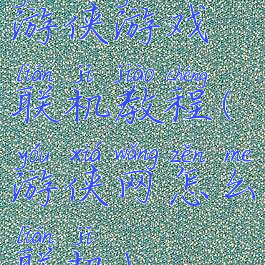 游侠游戏
lián jī jiào chéng
联机教程(
yóu xiá wǎng zěn me
游侠网怎么
lián jī
联机)